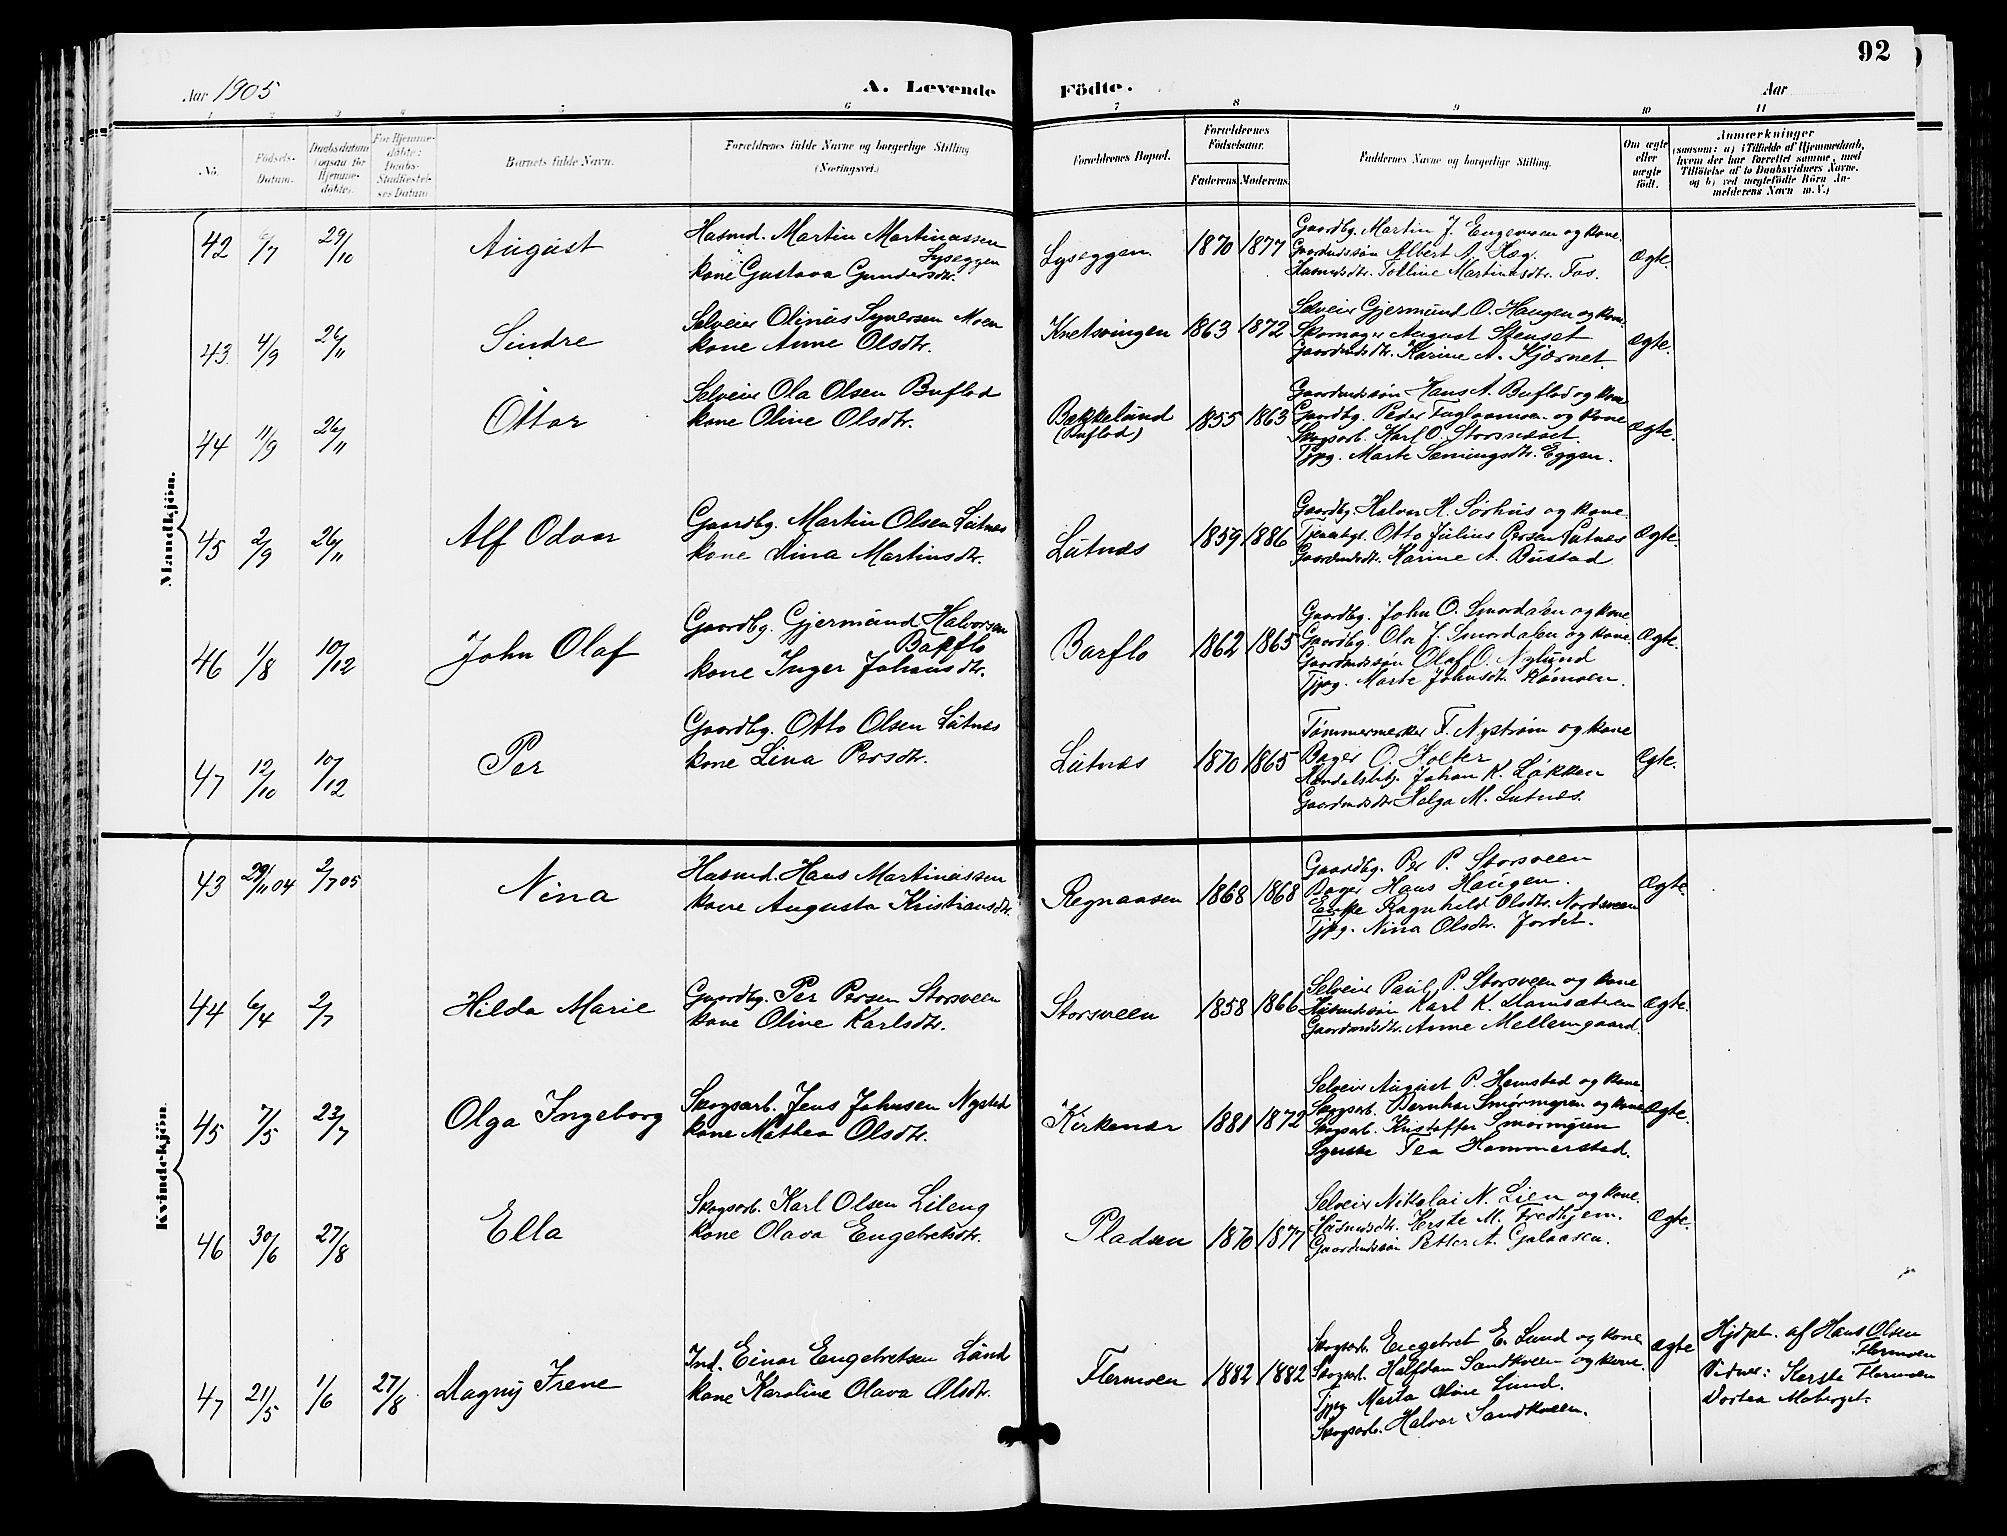 92
Aar 1905
A. Levende
Födte.
Aar
1 2 3 4 5 6 7 8 9 10 11
No.
Födsels-
Datum.
Daabsdatum
(ogsaa for
Hjemme-
döbte).
For Hjemme-
döbte:
Daabs-
Stadfæstel-
ses Datum.
Barnets fulde Navn.
Forældrenes fulde Navne og borgerlige Stilling
(Næringsvei.)
Forældrenes Bopæl.
Forældrenes
Födselsaar.
Faderens. Moderens.
Faddernes Navne og borgerlige Stilling.
Om ægte
eller
uægte
födt.
Anmærkninger
(saasom: a) i Tilfælde af Hjemmedaab,
hvem der har forrettet samme, med
Tilföielse af to Daabsvidners Navne.
og b) ved uægtefödte Börn An-
melderens Navn m. V.)
Mandkjön.
42 6/7 29/10 August
Husmd. Martin Martinassen
Lyseggen
kone Gustava Gundersdtr.
Lyseggen 1870 1877
Gaardbg. Martin J. Engemoen og kone.
Gaardmdssön Albert A. Hag.
Husmdsdtr. Tolline Martinusdtr. Fos.
Ægte.
43. 4/9 26/11 Sindre
Selveier Olinus Synersen Moen
kone Anne Olsdtr.
Knetsvingen 1863 1872
Selveier Gjermund O. Haugen og kone.
Skomager August Stenset
Gaardmdsdtr. Karine A. Kjærnet.
Ægte.
44 11/9 26/11 Ottar
Selveier Ola Olsen Buflod
kone Oline Olsdtr.
Bakkelund
(Buflod)
1855 1863
Gaardmdssön Hans A. Buflod og kone
Gaardbg. Peder Fuglaamoen og kone
Skogsarb. Karl O. Storsnæset.
Tjpg. Marte Sæmingsdtr. Eggen.
Ægte.
45 2/9 26/11 Alf Odvar
Gaardbg. Martin Olsen Lutnes
kone Dina Martinsdtr.
Lutnæs 1859 1886
Gaardbg. Halvor H. Sørhus og kone.
Tjenestgt. Otto Julius Persen Lutnæs
Gaardmdsdtr. Karine A. Bustad
Ægte.
46 1/8 10/12 John Olaf
Gaardbg. Gjermund Halvorsen
Barflo
kone Inger Johansdtr.
Barflo 1862 1865
Gaardbg. John O. Smordalen og kone
Gaardbg. Ola J. Smordalen og kone.
Gaardmdssøn Olaf O. Nylund
Tjpg. Marte Johnsdtr. Rømoen.
Ægte.
47 12/10 10/12 Per
Gaardbg. Otto Olsen Lutnes
kone Lina Persdtr.
Lutnæs 1870 1865
Tømmermerker F. Nystrøm og kone
Bager O. Holter
Handelsbetj. Johan K. Løkken
Gaardmdsdtr Helga M. Lutnæs.
Ægte.
Kvindekjön.
43 29/11 04 2/7 05 Nina
Husmd. Hans Martinussen
kone Augusta Kristiansdtr.
Regnaasen 1868 1868
Gaardbg. Per P. Storsveen
Bager Hans Haugen.
Enke Ragnhild Olsdtr. Nordsveen
Tjpg. Nina Olsdtr. Jordet.
Ægte.
44 6/4 2/7 Hilda Marie
Gaardbg. Per Persen Storsveen
kone Oline Karlsdtr.
Storsveen 1858 1866
Selveier Paul P. Storsveen og kone
Husmdssøn Karl K. Damsætren
Gaardmdsdtr. Anne Mellemgaard.
Ægte.
45 7/5 23/7 Olga Ingeborg
Skogsarb. Jens Johnsen Nysted
kone Mathea Olsdtr.
Kirkenær 1881 1872
Selveier August P. Hemstad og kone.
Skogsarb. Bernhar Smørmyren og kone
Skogsarb. Kristoffer Smørmyren
Syerske Tea Hammersted.
Ægte.
46 30/6 27/8 Ella
Skogsarb. Karl Olsen Lileng
kone Olava Engebretsdtr.
Pladsen 1870 1877
Selveier Nikolai N. Lien og kone.
Husmdsdtr. Kerste M. Fredhjem.
Gaardmdssøn Petter A. Galaasen.
Ægte.
47 21/5 1/6 27/8 Magny Irene
Ind. Einar Engebretsen Lund
kone Karoline Olava Olsdtr.
Flermoen 1882 1882
Skogsarb. Engebret E. Lund og kone
Skogsarb. Halfdan Sandkveen og kone.
Tjpg Marta Oline Lund.
Skogsarb. Halvor Sandkveen.
Ægte
Hjdpt. af Hans Olsen
Flermoen
Vidner: Kerste Flermoen
Dortea Moberget.